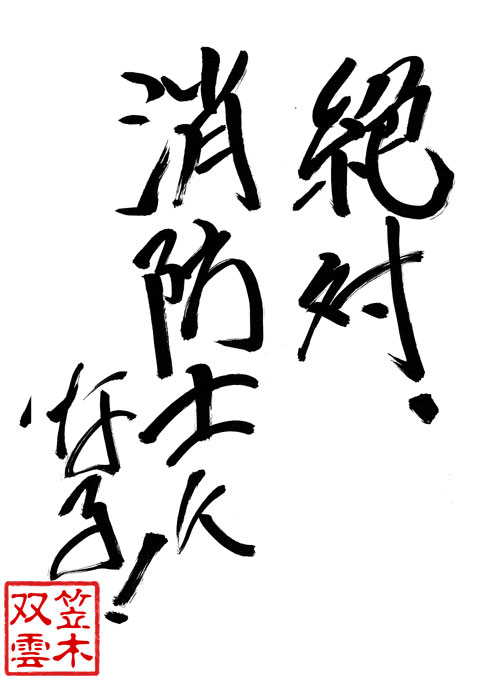 絶対、
消防士に
なる!
笠木
双雲